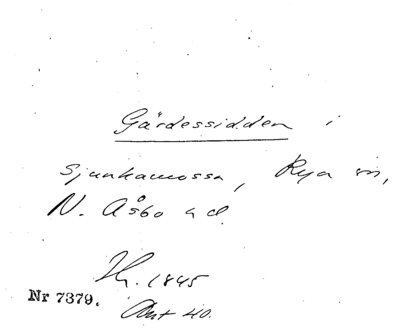 Gärdessidden i
Sjunkamossa, Rya sn,
N. Åsbo hd.
Th. 1845
Nr 7379.
Ant 40.